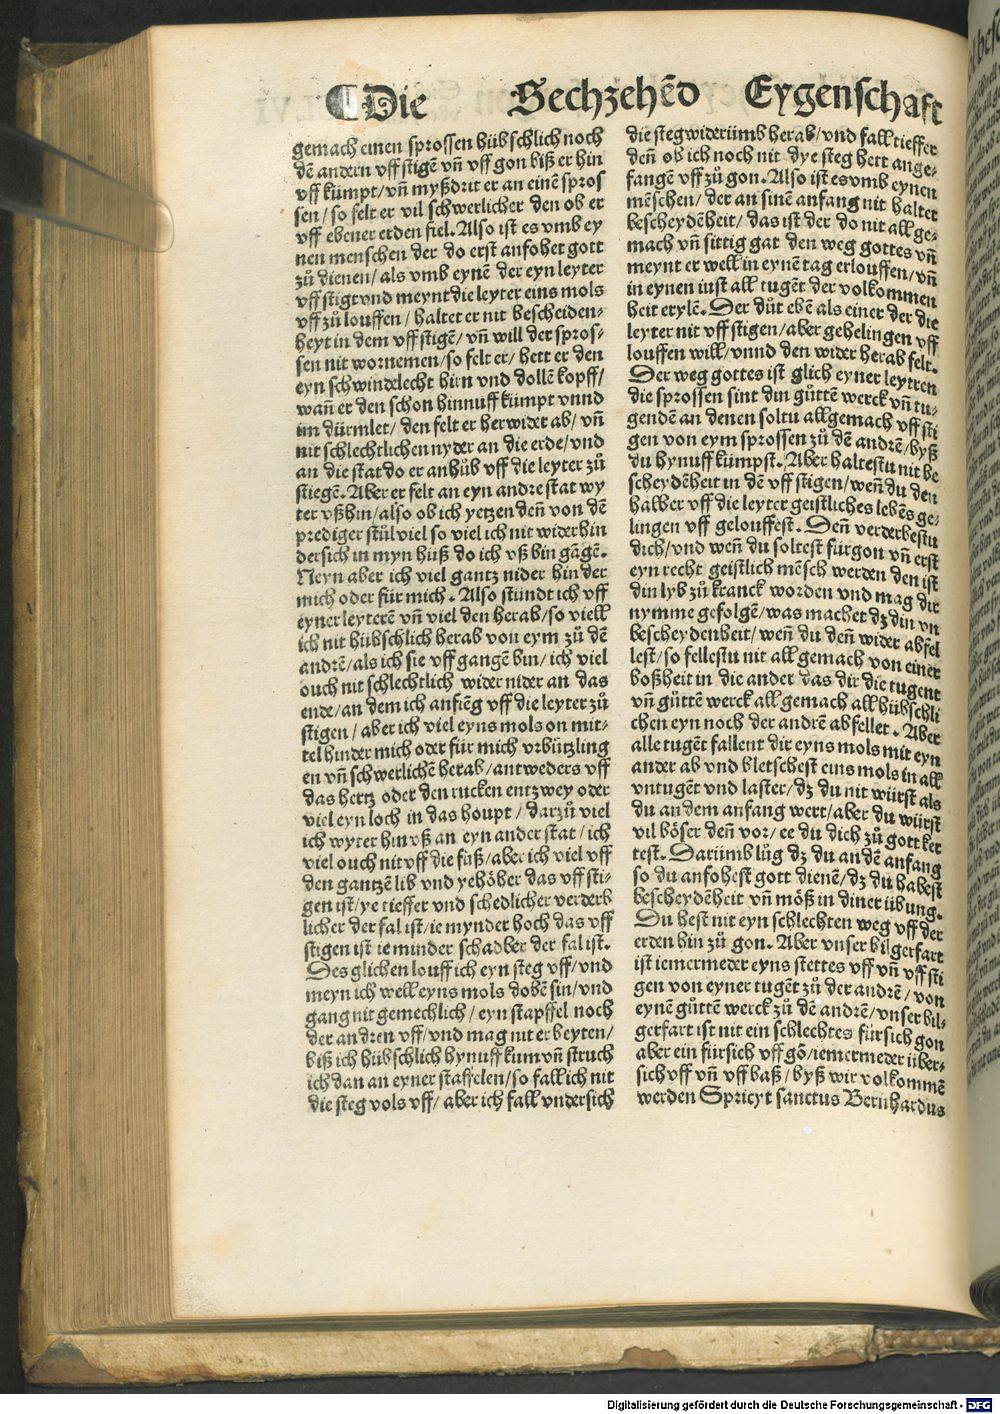 Die Sechzehēd Eygenschaft
gemach einen sprossen hübschlich noch
dē andern vff stigē vn̄ vff gon biß er hin
vff kümpt/ vn̄ myßdrit er an einē spros
sen/ so felt er vil schwerlicher den ob er
vff ebener erden fiel. Also ist es vmb ey
nen menschen der do erst anfohet gott
zů dienen/ als vmb eynē der eyn leyter
vff stigt vnd meynt die leyter eins mols
vff zů louffen/ haltet er nit bescheiden⸗
heyt in dem vff stigē/ vn̄ will der spros⸗
sen nit wornemen/ so felt er/ hett er den
eyn schwindelecht hirn vnd dollē kopff/
wan̄ er den schon hinnuff kumpt vnnd
im dürmlet/ den felt er herwider ab/ vn̄
nit schlechtlichen nyder an die erde/ vnd
an die stat do er anhůb vff die leyter zů
stiegē. Aber er felt an eyn andre stat wy
ter vßhin/ also ob ich yetzen den̄ von dē
prediger stůl viel so viel ich nit wider hin
dersich in myn hüß do ich vß bin gāgē.
Neyn aber ich viel gantz nider hin der
mich oder für mich. Also stůndt ich vff
eyner leyterē vn̄ viel den herab/ so viell
ich nit hübschlich herab von eym zů dē
andrē/ als ich sie vff gangē bin/ ich viel
ouch nit schlechtlich wider nider an das
ende/ an dem ich anfiēg vff die leyter zů
stigen/ aber ich viel eyns mols on mit⸗
tel hinder mich oder für mich vrbützling
en vn̄ schwerlichē herab/ antweders vff
das hertz oder den rucken entzwey oder
viel eyn loch in das houpt/ darzů viel
ich wyter hin vß an eyn ander stat/ ich
viel ouch nit vff die füß/ aber ich viel vff
den gantzē lib vnd ye höher das vff sti⸗
gen ist/ ye tieffer vnd schedlicher verderb
licher der fal ist/ ie mynder hoch das vff
stigen ist ie minder schadber der fal ist.
Des glichen louff ich eyn steg vff/ vnd
meyn ich well eyns mols dobē sin/ vnd
gang nit gemechlich/ eyn stapffel noch
der andren vff/ vnd mag nit erbeyten/
biß ich hübschlich hynuff kum vn̄ struch
ich dan an eyner staffelen/ so fall ich nit
die steg vols vff/ aber ich fall vndersich
die steg widerümb herab/ vnd fall tieffer
den̄ ob ich noch nit dye steg hett ange⸗
fangē vff zů gon. Also ist es vmb eynen
mēschen/ der an sinē anfang nit haltet
bescheydēheit/ das ist der do nit all ge⸗
mach vn̄ sittig gat den weg gottes vn̄
meynt er well in eynē tag erlouffen/ vn̄
in eynen iust all tugēt der volkommen
heit erylē. Der důt ebē als einer der die
leyter nit vff stigen/ aber gehelingen vff
louffen will/ vnnd den wider herab felt.
Der weg gottes ist glich eyner leytren
die sprossen sint din gůttē werck vn̄ tu⸗
gendē an denen soltu allgemach vff sti
gen von eym sprossen zů dē andrē/ byß
du hynuff kümpst. Aber haltestu nit be
scheydēheit in dē vff stigen/ wen̄ du den
halber vff die leyter geistliches lebēs ge⸗
lingen vff gelouffest. Den̄ verderbestu
dich/ vnd wen̄ du soltest fürgon vn̄ erst
eyn recht geistlich mēsch werden den ist
din lyb zů kranck worden vnd mag dir
nymme gefolgē/ was machet dz din vn
bescheydenheit/ wen̄ du den̄ wider abfel
lest/ so fellestu nit allgemach von einer
boßheit in die ander das dir die tugent
vn̄ gůttē werck allgemach all hübschli
chen eyn noch der andrē abfellet. Aber
alle tugēt fallent dir eyns mols mit eyn
ander ab vnd bletschest eins mols in all
vntugēt vnd laster/ dz du nit würst als
du an dem anfang wert/ aber du würst
vil böser den̄ vor/ ee du dich zů gott ker
test. Darümb lůg dz du an dē anfang
so du anfohest gott dienē/ dz du habest
bescheydēheit vn̄ mōß in diner übung.
Du hest nit eyn schlechten weg vff der
erden hin zů gon. Aber vnser bilgerfart
ist iemermeder eyns stettes vff vn̄ vff sti
gen von eyner tugēt zů der andrē/ von
eynē gůttē werck zů dē andrē/ vnser bil⸗
gerfart ist nit ein schlechtes fürsich gon
aber ein fürsich vff gō/ iemermeder über⸗
sich vff vn̄ vff baß/ byß wir volkommē
werden Spricyt sanctus Bernhardus
Digitalisierung gefördert durch die Deutsche Forschungsgemeinschaft - DFG